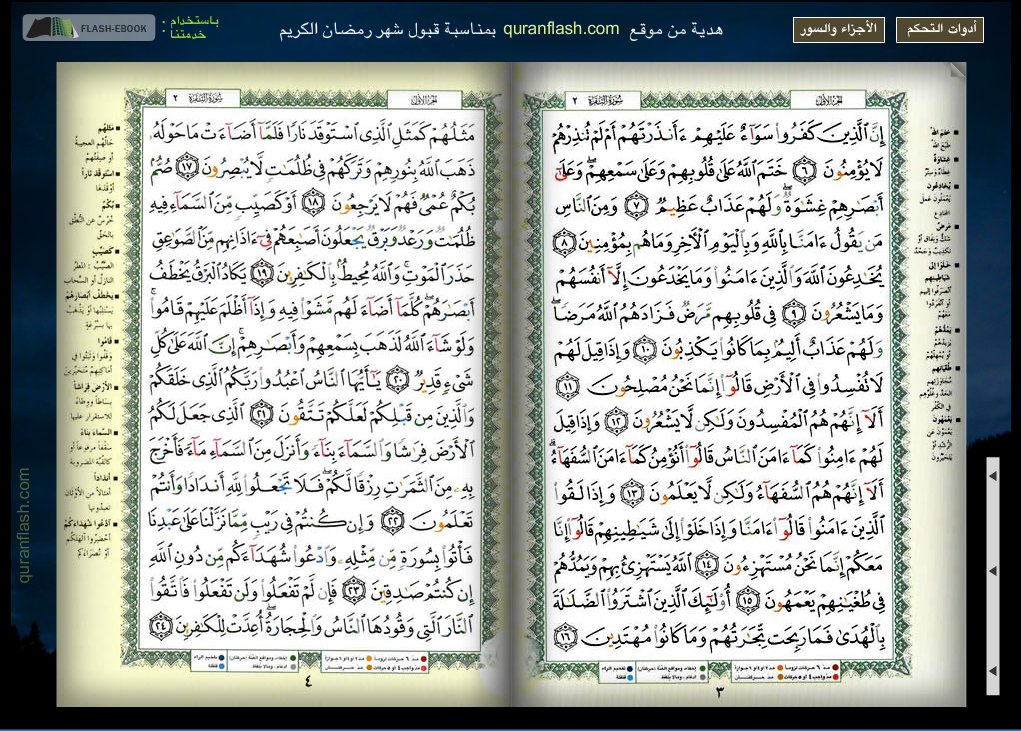 أدوات التحكم
الأجزاء والسور
هدية من موقع quranflash.com بمناسبة قبول شهر رمضان الكريم
باستخدام :
خدمتنا :
FLASH-EBOOK
الجزء الأول
سورة البقرة ٢
إِنَّ ٱلَّذِينَ كَفَرُوا۟ سَوَآءٌ عَلَيْهِمْ ءَأَنذَرْتَهُمْ أَمْ لَمْ تُنذِرْهُمْ
لَا يُؤْمِنُونَ ٦ خَتَمَ ٱللَّهُ عَلَىٰ قُلُوبِهِمْ وَعَلَىٰ سَمْعِهِمْ ۖ وَعَلَىٰٓ
أَبْصَـٰرِهِمْ غِشَـٰوَةٌ ۖ وَلَهُمْ عَذَابٌ عَظِيمٌ ٧ وَمِنَ ٱلنَّاسِ
مَن يَقُولُ ءَامَنَّا بِٱللَّهِ وَبِٱلْيَوْمِ ٱلْـَٔاخِرِ وَمَا هُم بِمُؤْمِنِينَ ٨
يُخَـٰدِعُونَ ٱللَّهَ وَٱلَّذِينَ ءَامَنُوا۟ وَمَا يَخْدَعُونَ إِلَّآ أَنفُسَهُمْ
وَمَا يَشْعُرُونَ ٩ فِى قُلُوبِهِم مَّرَضٌ فَزَادَهُمُ ٱللَّهُ مَرَضًا ۖ
وَلَهُمْ عَذَابٌ أَلِيمٌۢ بِمَا كَانُوا۟ يَكْذِبُونَ ١٠ وَإِذَا قِيلَ لَهُمْ
لَا تُفْسِدُوا۟ فِى ٱلْأَرْضِ قَالُوٓا۟ إِنَّمَا نَحْنُ مُصْلِحُونَ ١١
أَلَآ إِنَّهُمْ هُمُ ٱلْمُفْسِدُونَ وَلَـٰكِن لَّا يَشْعُرُونَ ١٢ وَإِذَا قِيلَ
لَهُمْ ءَامِنُوا۟ كَمَآ ءَامَنَ ٱلنَّاسُ قَالُوٓا۟ أَنُؤْمِنُ كَمَآ ءَامَنَ ٱلسُّفَهَآءُ ۗ
أَلَآ إِنَّهُمْ هُمُ ٱلسُّفَهَآءُ وَلَـٰكِن لَّا يَعْلَمُونَ ١٣ وَإِذَا لَقُوا۟
ٱلَّذِينَ ءَامَنُوا۟ قَالُوٓا۟ ءَامَنَّا وَإِذَا خَلَوْا۟ إِلَىٰ شَيَـٰطِينِهِمْ قَالُوٓا۟ إِنَّا
مَعَكُمْ إِنَّمَا نَحْنُ مُسْتَهْزِءُونَ ١٤ ٱللَّهُ يَسْتَهْزِئُ بِهِمْ وَيَمُدُّهُمْ
فِى طُغْيَـٰنِهِمْ يَعْمَهُونَ ١٥ أُو۟لَـٰٓئِكَ ٱلَّذِينَ ٱشْتَرَوُا۟ ٱلضَّلَـٰلَةَ
بِٱلْهُدَىٰ فَمَا رَبِحَت تِّجَـٰرَتُهُمْ وَمَا كَانُوا۟ مُهْتَدِينَ ١٦
٣
الجزء الأول
سورة البقرة ٢
مَثَلُهُمْ كَمَثَلِ ٱلَّذِى ٱسْتَوْقَدَ نَارًا فَلَمَّآ أَضَآءَتْ مَا حَوْلَهُۥ
ذَهَبَ ٱللَّهُ بِنُورِهِمْ وَتَرَكَهُمْ فِى ظُلُمَـٰتٍ لَّا يُبْصِرُونَ ١٧ صُمٌّۢ
بُكْمٌ عُمْىٌ فَهُمْ لَا يَرْجِعُونَ ١٨ أَوْ كَصَيِّبٍ مِّنَ ٱلسَّمَآءِ فِيهِ
ظُلُمَـٰتٌ وَرَعْدٌ وَبَرْقٌ يَجْعَلُونَ أَصَـٰبِعَهُمْ فِىٓ ءَاذَانِهِم مِّنَ ٱلصَّوَٰعِقِ
حَذَرَ ٱلْمَوْتِ ۚ وَٱللَّهُ مُحِيطٌۢ بِٱلْكَـٰفِرِينَ ١٩ يَكَادُ ٱلْبَرْقُ يَخْطَفُ
أَبْصَـٰرَهُمْ ۖ كُلَّمَآ أَضَآءَ لَهُم مَّشَوْا۟ فِيهِ وَإِذَآ أَظْلَمَ عَلَيْهِمْ قَامُوا۟ ۚ
وَلَوْ شَآءَ ٱللَّهُ لَذَهَبَ بِسَمْعِهِمْ وَأَبْصَـٰرِهِمْ ۚ إِنَّ ٱللَّهَ عَلَىٰ كُلِّ
شَىْءٍ قَدِيرٌ ٢٠ يَـٰٓأَيُّهَا ٱلنَّاسُ ٱعْبُدُوا۟ رَبَّكُمُ ٱلَّذِى خَلَقَكُمْ
وَٱلَّذِينَ مِن قَبْلِكُمْ لَعَلَّكُمْ تَتَّقُونَ ٢١ ٱلَّذِى جَعَلَ لَكُمُ
ٱلْأَرْضَ فِرَٰشًا وَٱلسَّمَآءَ بِنَآءً وَأَنزَلَ مِنَ ٱلسَّمَآءِ مَآءً فَأَخْرَجَ
بِهِۦ مِنَ ٱلثَّمَرَٰتِ رِزْقًا لَّكُمْ ۖ فَلَا تَجْعَلُوا۟ لِلَّهِ أَندَادًا وَأَنتُمْ
تَعْلَمُونَ ٢٢ وَإِن كُنتُمْ فِى رَيْبٍ مِّمَّا نَزَّلْنَا عَلَىٰ عَبْدِنَا
فَأْتُوا۟ بِسُورَةٍ مِّن مِّثْلِهِۦ وَٱدْعُوا۟ شُهَدَآءَكُم مِّن دُونِ ٱللَّهِ
إِن كُنتُمْ صَـٰدِقِينَ ٢٣ فَإِن لَّمْ تَفْعَلُوا۟ وَلَن تَفْعَلُوا۟ فَٱتَّقُوا۟
ٱلنَّارَ ٱلَّتِى وَقُودُهَا ٱلنَّاسُ وَٱلْحِجَارَةُ ۖ أُعِدَّتْ لِلْكَـٰفِرِينَ ٢٤
٤
quranflash.com